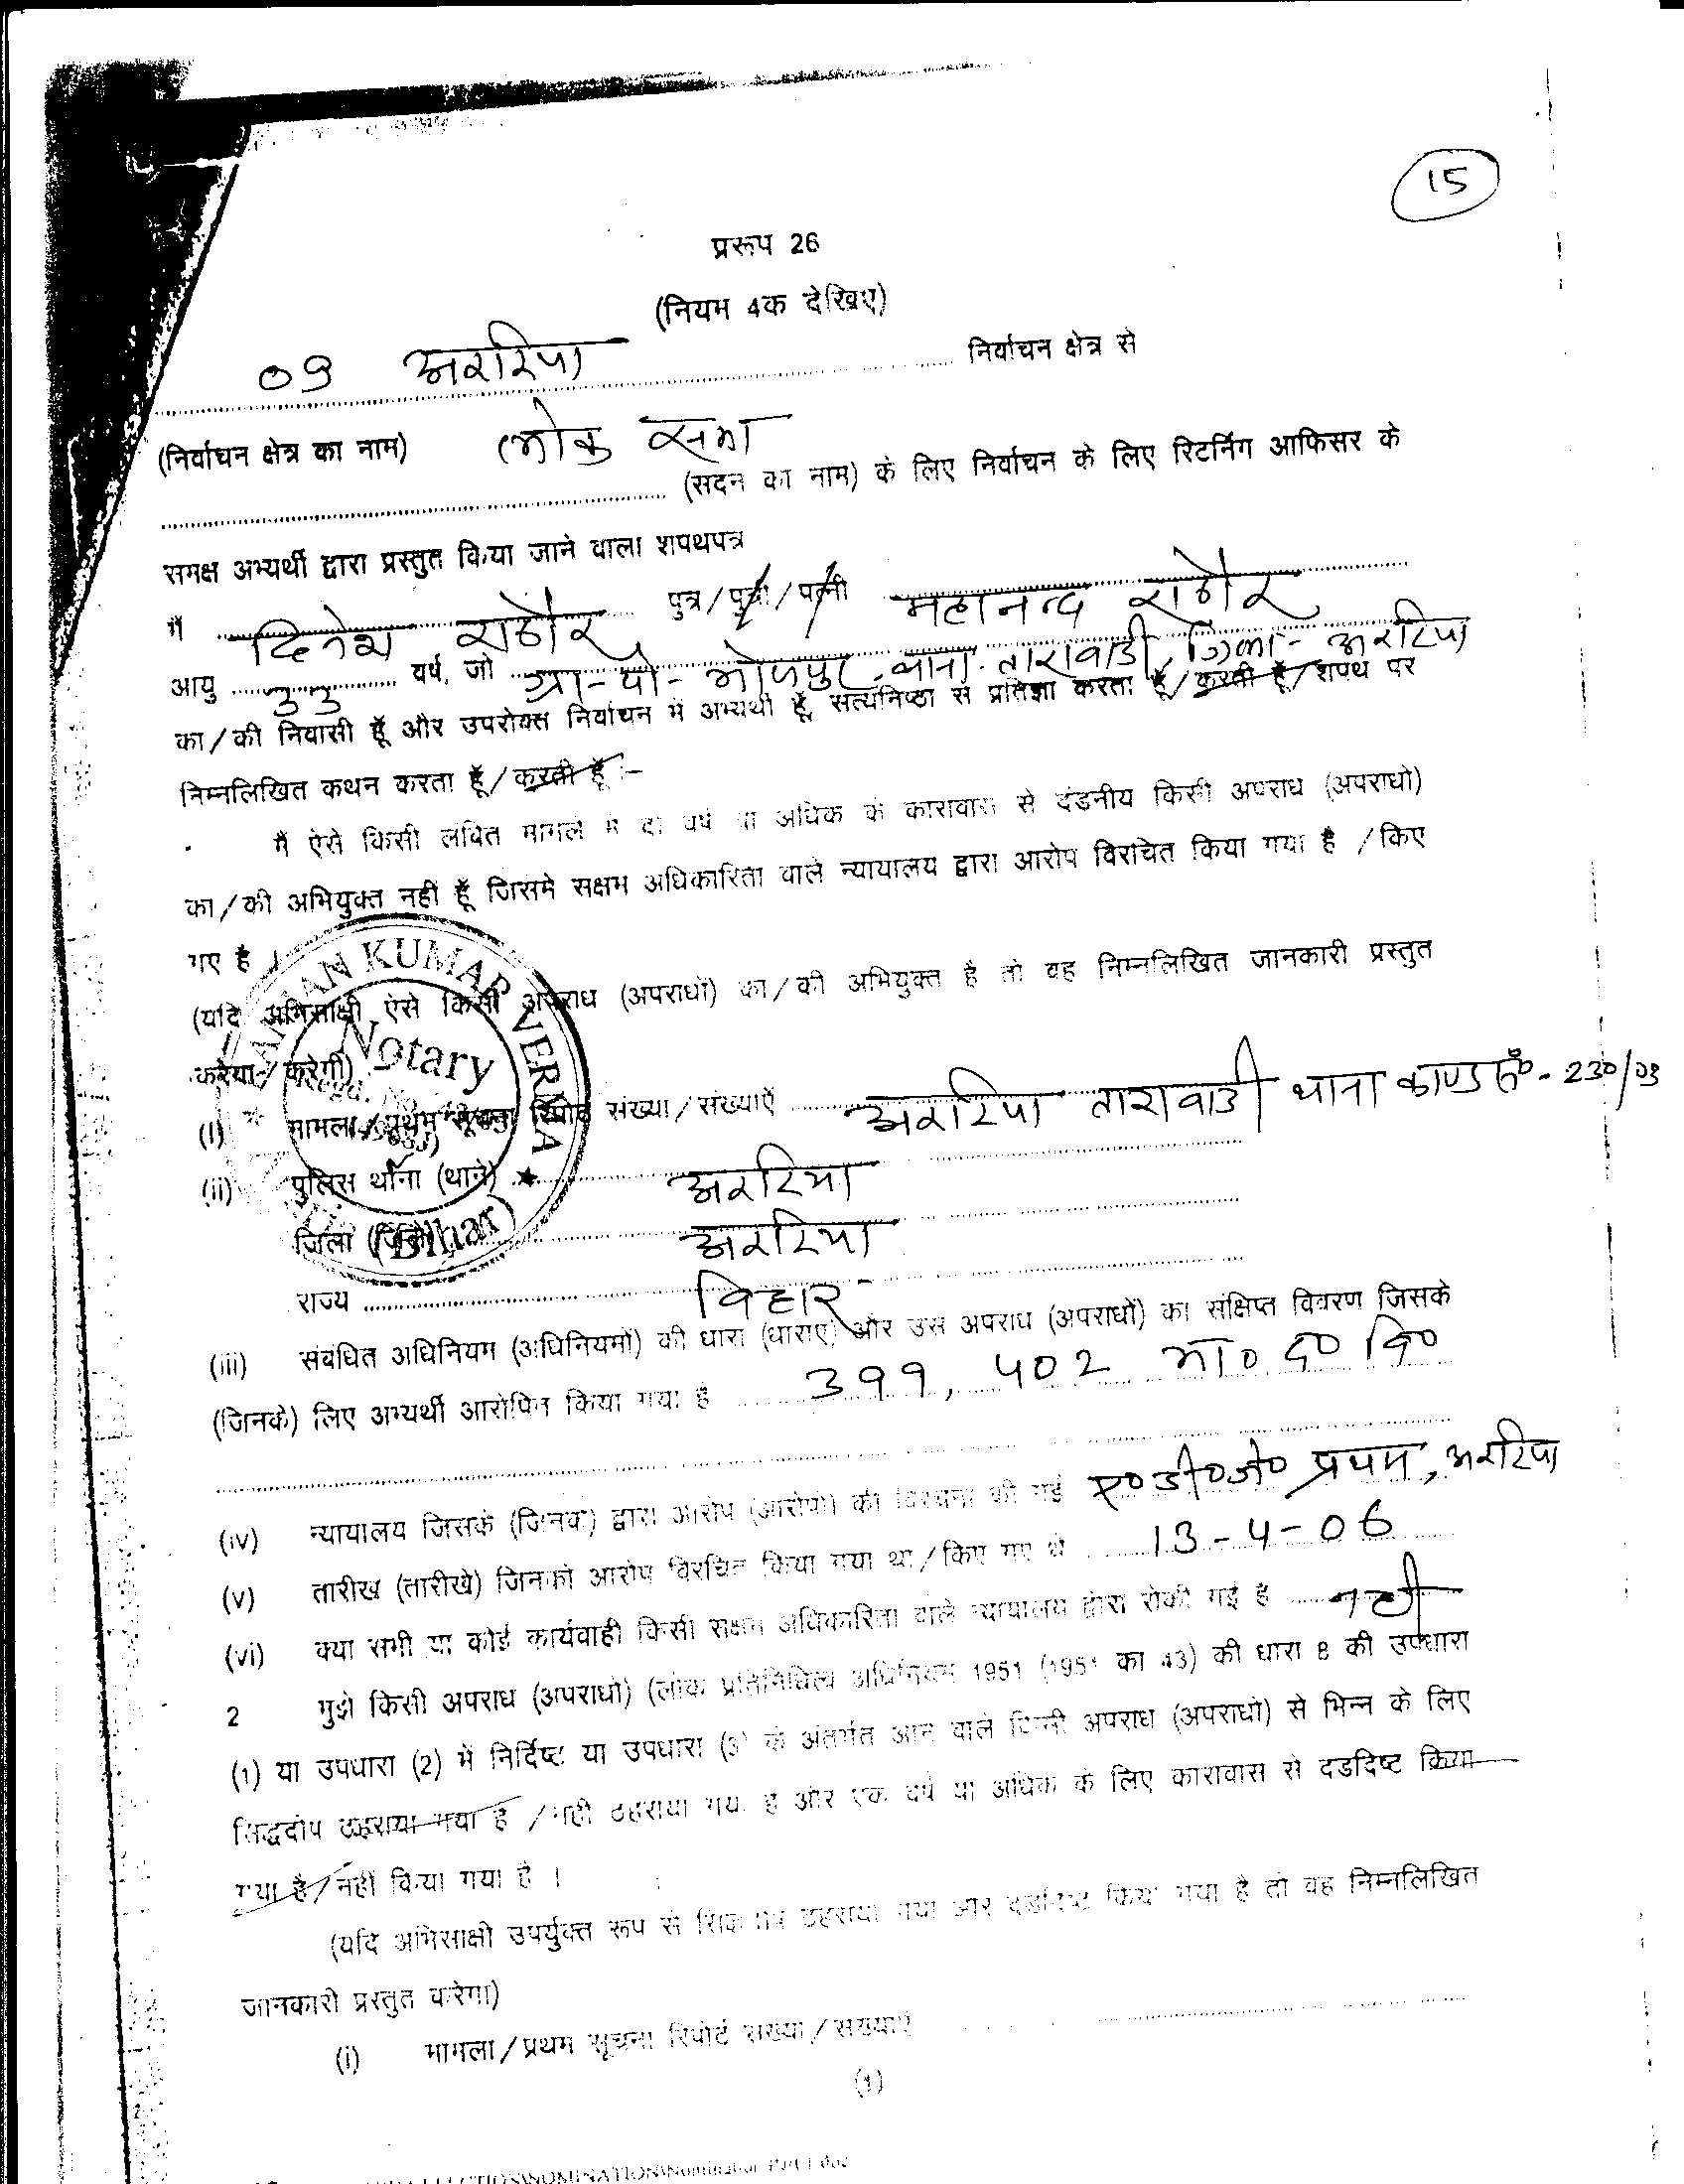 15
प्ररूप 26
(नियम 4क देखिए)
09 अररिया निर्वाचन क्षेत्र से
(निर्वाचन क्षेत्र का नाम) लोक सभा
(सदन का नाम) के लिए निर्वाचन के लिए रिटर्निंग आफिसर के
समक्ष अभ्यर्थी द्वारा प्रस्तुत किया जाने वाला शपथपत्र
मैं दिनेश राठौर पुत्र/पुत्री/पत्नी महानन्द राठौर
आयु वर्ष, जो ग्रा-पो-भोजपुर, थाना-तारावाडी, जिला-अररिया
का/की निवासी हूँ और उपरोक्त निर्वाचन में अभ्यर्थी हूँ, सत्यनिष्ठा से प्रतिज्ञा करता हूँ/करती हूँ/शपथ पर
निम्नलिखित कथन करता हूँ/करती हूँ :-
मैं ऐसे किसी लंबित मामले में दो वर्ष या अधिक के कारावास से दंडनीय किसी अपराध (अपराधो)
का/की अभियुक्त नहीं हूँ जिसमे सक्षम अधिकारिता वाले न्यायालय द्वारा आरोप विरचित किया गया है /किए
गए है
(यदि अभिसाक्षी ऐसे किसी अपराध (अपराधों) का/की अभियुक्त है तो वह निम्नलिखित जानकारी प्रस्तुत
करेगा/करेगी)
(i) मामला/प्रथम सूचना रिपोर्ट संख्या/संख्याऍ अररिया तारावाडी थाना काण्ड सं०-230/03
(ii) पुलिस थाना (थाने) अररिया
जिला अररिया
राज्य विहार
(iii) संबंधित अधिनियम (अधिनियमों) की धारा (धाराए) और उस अपराध (अपराधों) का संक्षिप्त विवरण जिसके
(जिनके) लिए अभ्यर्थी आरोपित किया गया है 399, 402 भा० द० वि०
(iv) न्यायालय जिसके (जिनके) द्वारा आरोप (आरोपो) की विरचना की गई ए०डी०जे० प्रथम, अररिया
(v) तारीख (तारीखे) जिनको आरोप विरचित किया गया था/किए गए थे 13-4-06
(vi) क्या सभी या कोई कार्यवाही किसी सक्षम अधिकारिता वाले न्यायालय द्वारा रोकी गई है नही
2 मुझे किसी अपराध (अपराधो) (लोक प्रतिनिधित्व अधिनियम 1951 (1951 का 43) की धारा 8 की उपधारा
(1) या उपधारा (2) में निर्दिष्ट या उपधारा (3) के अंतर्गत आने वाले किसी अपराध (अपराधो) से भिन्न के लिए
सिद्धदोष ठहराया गया है /नही ठहराया गया है और एक वर्ष या अधिक के लिए कारावास से दडदिष्ट किया
गया है/नहीं किया गया है ।
(यदि अभिसाक्षी उपर्युक्त रूप से सिद्धदोष ठहराया गया और दडदिष्ट किया गया है तो वह निम्नलिखित
जानकारी प्रस्तुत करेगा)
(i) मामला/प्रथम सूचना रिपोर्ट संख्या/संख्याऐ
(1)
KUMAR VERMA
Notary
(Bihar)